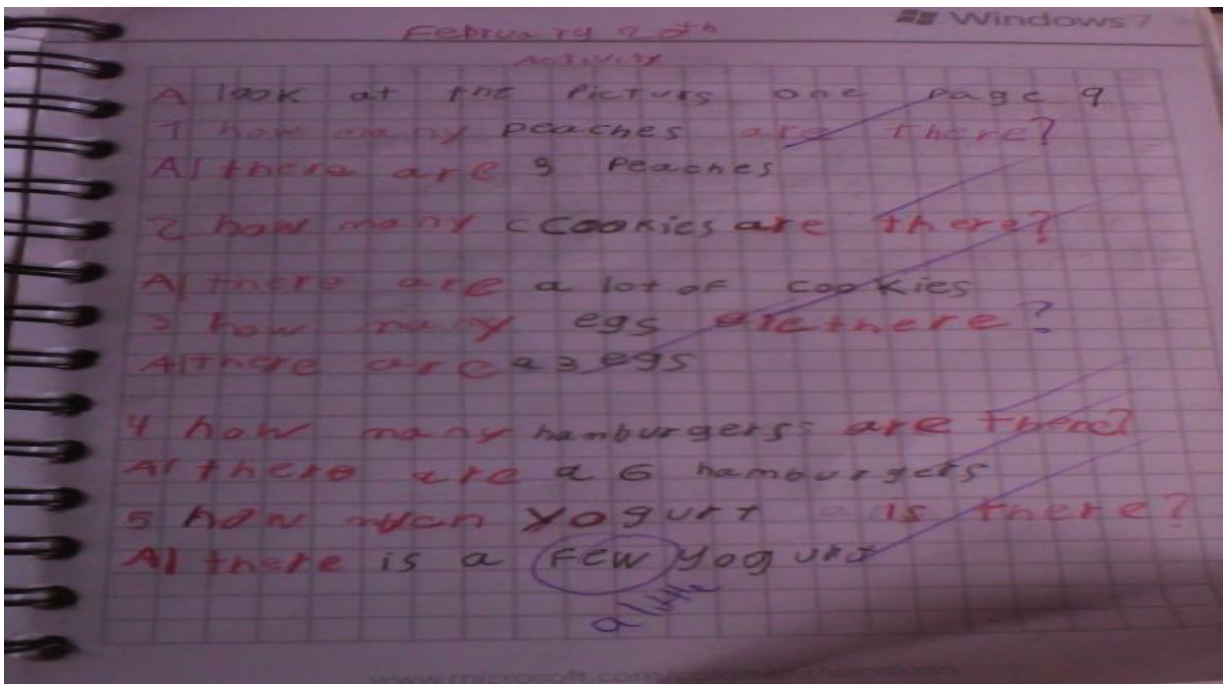 Windows 7
February 20th
Activity
A look at the picturs one page 9
1 how many peaches are there?
A| there are 9 peaches
2 how many ccookies are there?
A| there are a lot of cookies
3 how many egs are there?
A| there are a 3 egs
4 how many hamburgers are there?
A| there are a 6 hamburgers
5 how much yogurt is there?
A| there is a few yogurt
a little